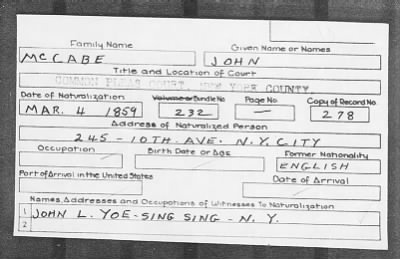 Family Name Given Name or Names
McCABE JOHN
Title and Location of Court
COMMON PLEAS COURT, NEW YORK COUNTY.
Date of Naturalization Volume or Bundle No Page No Copy of Record No
MAR. 4 1859 232 — 278
Address of Naturalized Person
245 - 10TH. AVE. N.Y. CITY
Occupation Birth Date or Age Former Nationality
ENGLISH
Port of Arrival in the United States Date of Arrival
Names, Addresses and Occupations of Witnesses To Naturalization
1 JOHN L. YOE - SING SING - N. Y.
2